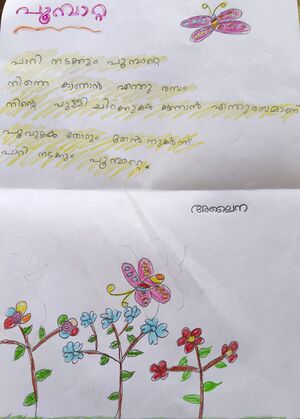 പൂമ്പാറ്റ
പാറി നടക്കും പൂമ്പാറ്റ
നിന്നെ കാണാൻ എന്തു രസം
നിന്റെ പുള്ളി ചിറകുകൾ കാണാൻ എന്തുരസമാണ
പൂവുകൾ തോറും തേൻ നുകർന്ന്
പാറി നടക്കും പൂമ്പാറ്റെ.
അലൈന